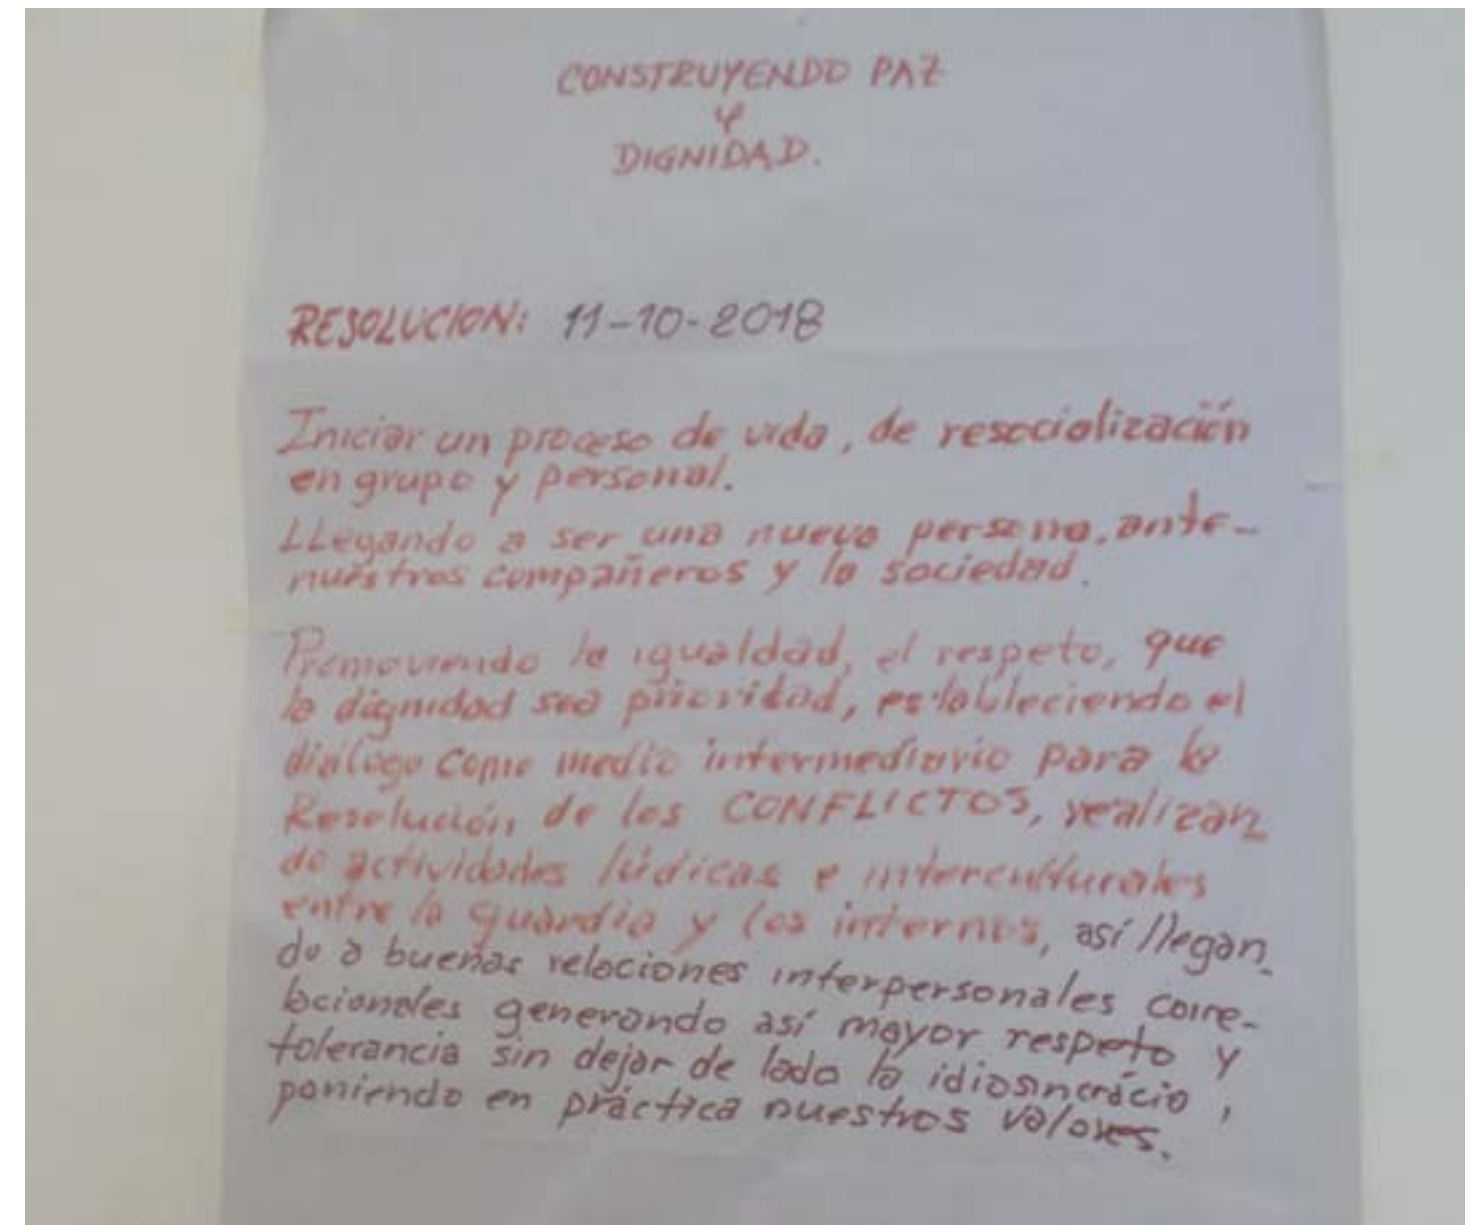 CONSTRUYENDO PAZ
Y
DIGNIDAD.
RESOLUCION: 11-10-2018
Iniciar un proceso de vida, de resocialización
en grupo y personal.
LLegando a ser una nueva persona, ante-
nuestros compañeros y la sociedad.
Promoviendo la igualdad, el respeto, que
la dignidad sea prioridad, estableciendo el
diálogo como medio intermediario para la
Resolución de los CONFLICTOS, realizan
do actividades lúdicas e interculturales
entre la guardia y los internos, así llegan_
do a buenas relaciones interpersonales corre-
lacionales generando así mayor respeto y
tolerancia sin dejar de lado la idiosincrácia,
poniendo en práctica nuestros valores.